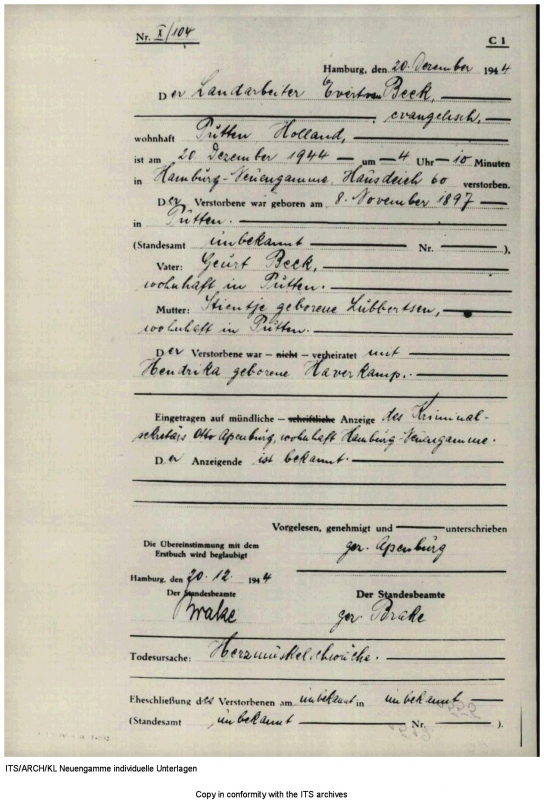 Nr. X/104
C 1
Hamburg, den 20. Dezember 1944
Der Landarbeiter Evert Beck,
evangelisch,
wohnhaft Pütten Holland,
ist am 20. Dezember 1944 um 4 Uhr 10 Minuten
in Hamburg-Neuengamme, Hausdeich 60 verstorben.
Der Verstorbene war geboren am 8. November 1897
in Pütten.
(Standesamt unbekannt Nr. ),
Vater: Geurt Beck,
wohnhaft in Pütten.
Mutter: Stientje geborene Lübbertsen,
wohnhaft in Pütten.
Der Verstorbene war – nicht – verheiratet mit
Hendrika geborene Haverkamp.
Eingetragen auf mündliche – schriftliche Anzeige des Kriminal-
sekretärs Otto Apenburg, wohnhaft Hamburg-Neuengamme.
Der Anzeigende ist bekannt.
Vorgelesen, genehmigt und unterschrieben
Die Übereinstimmung mit dem
Erstbuch wird beglaubigt
gez. Apenburg
Hamburg, den 20.12. 1944
Der Standesbeamte
Der Standesbeamte
Brake
gez. Brake
Todesursache: Herzmuskelschwäche.
Eheschließung des Verstorbenen am unbekannt in unbekannt
(Standesamt unbekannt Nr. ).
ITS/ARCH/KL Neuengamme individuelle Unterlagen
Copy in conformity with the ITS archives